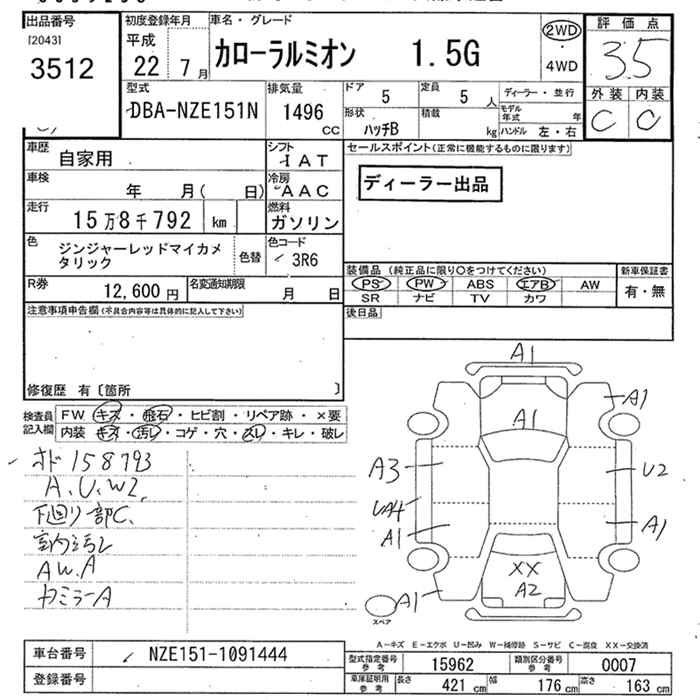 出品番号
[2043]
3512
初度登録年月
平成
22 7月
車名・グレード
カローラルミオン 1.5G
2WD
・
4WD
評価点
3.5
外装 内装
C C
型式
DBA-NZE151N
排気量
1496
CC
ドア
5
定員
5 人
形状
ハッチB
積載
kg
ディーラー・並行
モデル年式 年
ハンドル 左・右
車歴
自家用
シフト
IAT
車検
年 月( 日)
冷房
AAC
走行
15万8千792 km
燃料
ガソリン
色
ジンジャーレッドマイカメ
タリック
色替
色コード
3R6
R券
12,600 円
名変通知期限
月 日
セールスポイント(正常に機能するものに限ります)
ディーラー出品
装備品 (純正品に限り○をつけてください)
PS PW ABS エアB AW
SR ナビ TV カワ
新車保証書
有・無
後日品
注意事項申告欄(不具合内容等は具体的に記入して下さい)
修復歴 有〔箇所 〕
検査員
記入欄
FW キズ・飛石・ヒビ割・リペア跡・×要
内装 キズ・汚レ・コゲ・穴・スレ・キレ・破レ
オド158793
A.U.W2.
下回り部C.
室内汚レ
AW.A
カミラーA
A1
A1
A1
A3
U2
UA4
A1
A1
XX
A2
A1
スペア
A－キズ E－エクボ U－凹み W－補修跡 S－サビ C－腐食 XX－交換済
車台番号
NZE151-1091444
登録番号
型式指定番号
参考
15962
類別区分番号
参考
0007
車庫証明用
参考
長さ
421 cm
幅
176 cm
高さ
163 cm